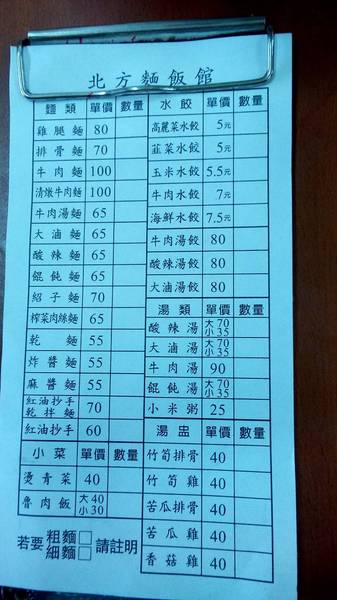 北方麵飯館
麵類 單價 數量
雞腿麵 80
排骨麵 70
牛肉麵 100
清燉牛肉麵 100
牛肉湯麵 65
大滷麵 65
酸辣麵 65
餛飩麵 65
紹子麵 70
榨菜肉絲麵 65
乾麵 55
炸醬麵 55
麻醬麵 55
紅油抄手
乾拌麵 70
紅油抄手 60
小菜 單價 數量
燙青菜 40
魯肉飯 大40
小30
若要 粗麵□
細麵□ 請註明
水餃 單價 數量
高麗菜水餃 5元
韮菜水餃 5元
玉米水餃 5.5元
牛肉水餃 7元
海鮮水餃 7.5元
牛肉湯餃 80
酸辣湯餃 80
大滷湯餃 80
湯類 單價 數量
酸辣湯 大70
小35
大滷湯 大70
小35
牛肉湯 90
餛飩湯 大70
小35
小米粥 25
湯盅 單價 數量
竹筍排骨 40
竹筍雞 40
苦瓜排骨 40
苦瓜雞 40
香菇雞 40